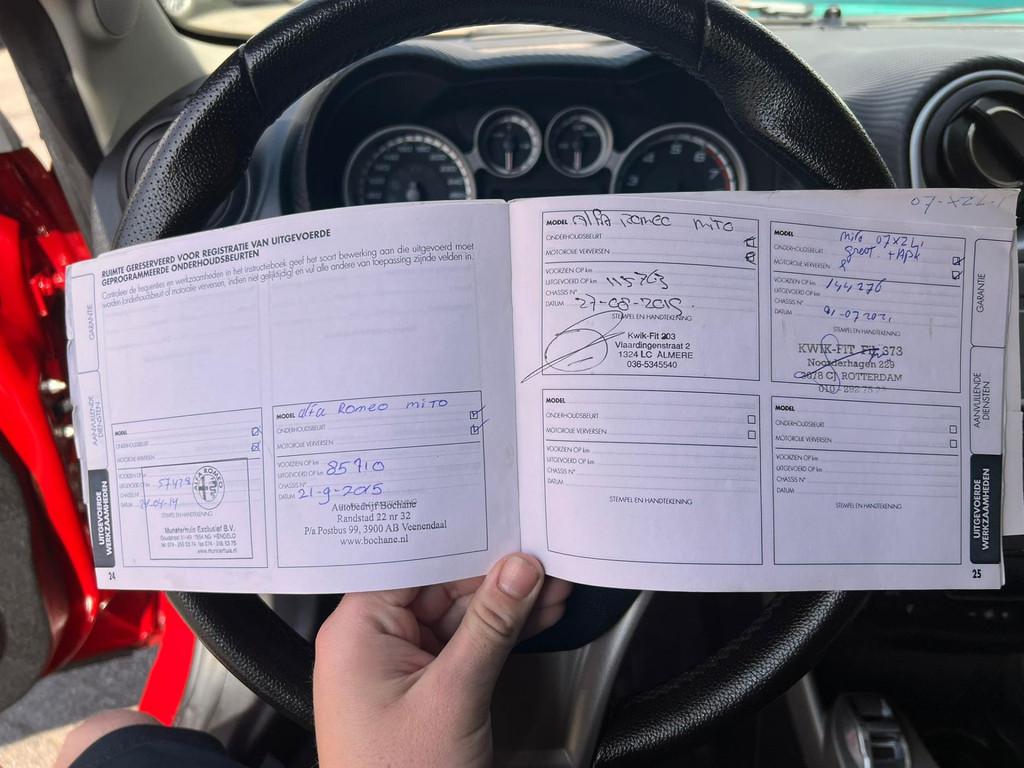 RUIMTE GERESERVEERD VOOR REGISTRATIE VAN UITGEVOERDE
GEPROGRAMMEERDE ONDERHOUDSBEURTEN
Controleer de frequenties en werkzaamheden in het instructieboek geef het soort bewerking aan die uitgevoerd moet
worden (onderhoudsbeurt of motorolie verversen, indien niet gelijktijdig) en vul alle andere van toepassing zijnde velden in.
GARANTIE
AANVULLENDE
DIENSTEN
UITGEVOERDE
WERKZAAMHEDEN
MODEL
ONDERHOUDSBEURT
MOTOROLIE VERVERSEN
VOORZIEN OP km
UITGEVOERD OP km
CHASSIS N°
DATUM
STEMPEL EN HANDTEKENING
ALFA ROMEO
Munsterhuis Exclusief B.V.
HENGELO
24
MODEL alfa Romeo miTO
ONDERHOUDSBEURT
MOTOROLIE VERVERSEN
VOORZIEN OP km
UITGEVOERD OP km 85710
CHASSIS N°
DATUM 21-9-2015
Autobedrijf Bochane
Randstad 22 nr 32
P/a Postbus 99, 3900 AB Veenendaal
www.bochane.nl
07-XZL-1
MODEL Alfa Romeo MiTO
ONDERHOUDSBEURT
MOTOROLIE VERVERSEN
VOORZIEN OP km
UITGEVOERD OP km 115763
CHASSIS N°
DATUM 27-08-2018
STEMPEL EN HANDTEKENING
Kwik-Fit 203
Vlaardingenstraat 2
1324 LC ALMERE
036-5345540
MODEL Mito 07XZL1
ONDERHOUDSBEURT groot +APK
MOTOROLIE VERVERSEN
VOORZIEN OP km
UITGEVOERD OP km 144276
CHASSIS N°
DATUM 01-07-2021
STEMPEL EN HANDTEKENING
KWIK-FIT 373
Noorderhagen 229
ROTTERDAM
MODEL
ONDERHOUDSBEURT
MOTOROLIE VERVERSEN
VOORZIEN OP km
UITGEVOERD OP km
CHASSIS N°
DATUM
STEMPEL EN HANDTEKENING
MODEL
ONDERHOUDSBEURT
MOTOROLIE VERVERSEN
VOORZIEN OP km
UITGEVOERD OP km
CHASSIS N°
DATUM
STEMPEL EN HANDTEKENING
GARANTIE
AANVULLENDE
DIENSTEN
UITGEVOERDE
WERKZAAMHEDEN
25
4 5 6 7